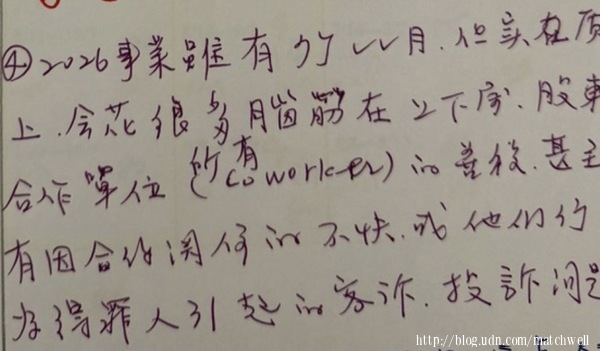 ④2026事業雖有ㄅㄧㄥ月.但实在质
上.会花很多腦筋在上下屬.股東
合作單位(所有coworker)的差役.甚至
有因合作关係的不快.或他们行
为得罪人引起的客诉.投訴问题
http://blog.udn.com/matchwell